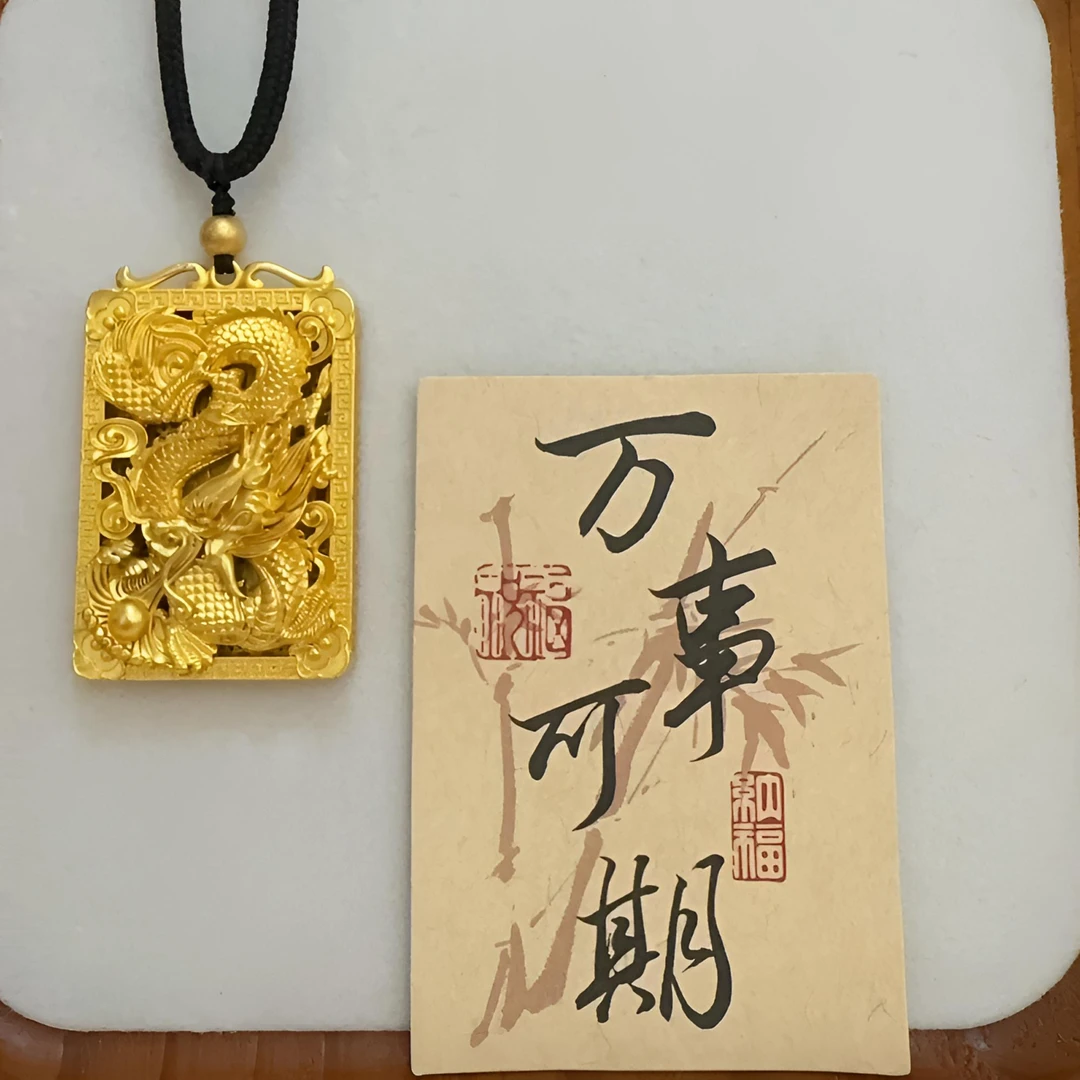 万事可期
纳福